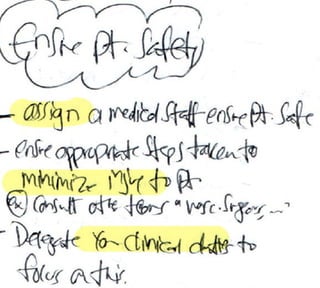 Ensre Pt. Safety
- assign a medical staff ensre Pt. Safe
- ensre appropriate steps taken to
minimize risk to Pt
(ex) Consult othe teams "vasc. Surgeons, ..."
- Delegate Yor clinical duties to
focus on this.